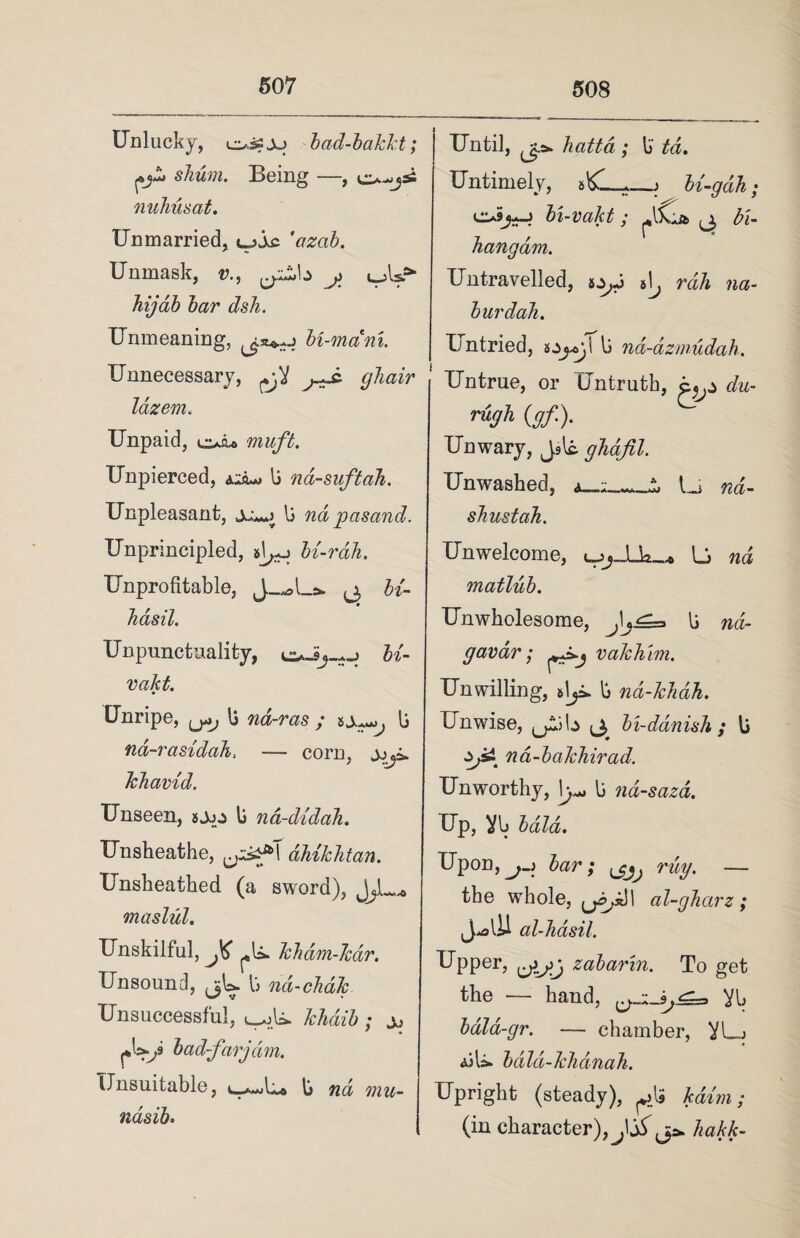 507
508
Unlucky, بدبخت bad-bakht;
شوم shúm. Being —, نحوست
nuhúsat.
Unmarried, عذب 'azab.
Unmask, v., حجاب بر داشتن
hijáb bar dsh.
Unmeaning, بیمعنی bí-ma'ní.
Unnecessary, غیر لازم ghair
lázem.
Unpaid, مفت muft.
Unpierced, نا سفته ná-suftah.
Unpleasant, نا پسند ná pasand.
Unprincipled, بیراه bí-ráh.
Unprofitable, بی حاصل bí-
hásil.
Unpunctuality, بیوقت bí-
vakt.
Unripe, نا رس ná-ras; نا رسیده
ná-rasídah, — corn, خوید
khavíd.
Unseen, نا دیده ná-dídah.
Unsheathe, آهیختن áhíkhtan.
Unsheathed (a sword), مسلول
maslúl.
Unskilful, خام کار khám-kár.
Unsound, نا چاق ná-chák
Unsuccessful, خایب kháib; بد
فرجام bad-farjám.
Unsuitable, نا مناسب ná mu-
násib.
Until, حتی hattá; تا tá.
Untimely, بیگاه bí-gáh;
بیوقت bí-vakt; بی هنگام bí-
hangám.
Untravelled, راه نبرده ráh na-
burdah.
Untried, نا آزموده ná-ázmúdah.
Untrue, or Untruth, دروغ du-
rúgh (gf.).
Unwary, غافل gháfil.
Unwashed, نا شسته ná-
shustah.
Unwelcome, نا مطلوب ná
matlúb.
Unwholesome, نا گوار ná-
gavár; وخیم vakhím.
Unwilling, نا خواه ná-kháh.
Unwise, بی دانش bí-dánish; نا
بخرد ná-bakhirad.
Unworthy, نا سزا ná-sazá.
Up, بالا bálá.
Upon, بر bar; روی rúy. —
the whole, الغرض al-gharz;
الحاصل al-hásil.
Upper, زبرین zabarín. To get
the — hand, بالا گرفتن
bálá-gr. — chamber, بالا
خانه bálá-khánah.
Upright (steady), قایم káim;
(in character), حق گذار hakk-